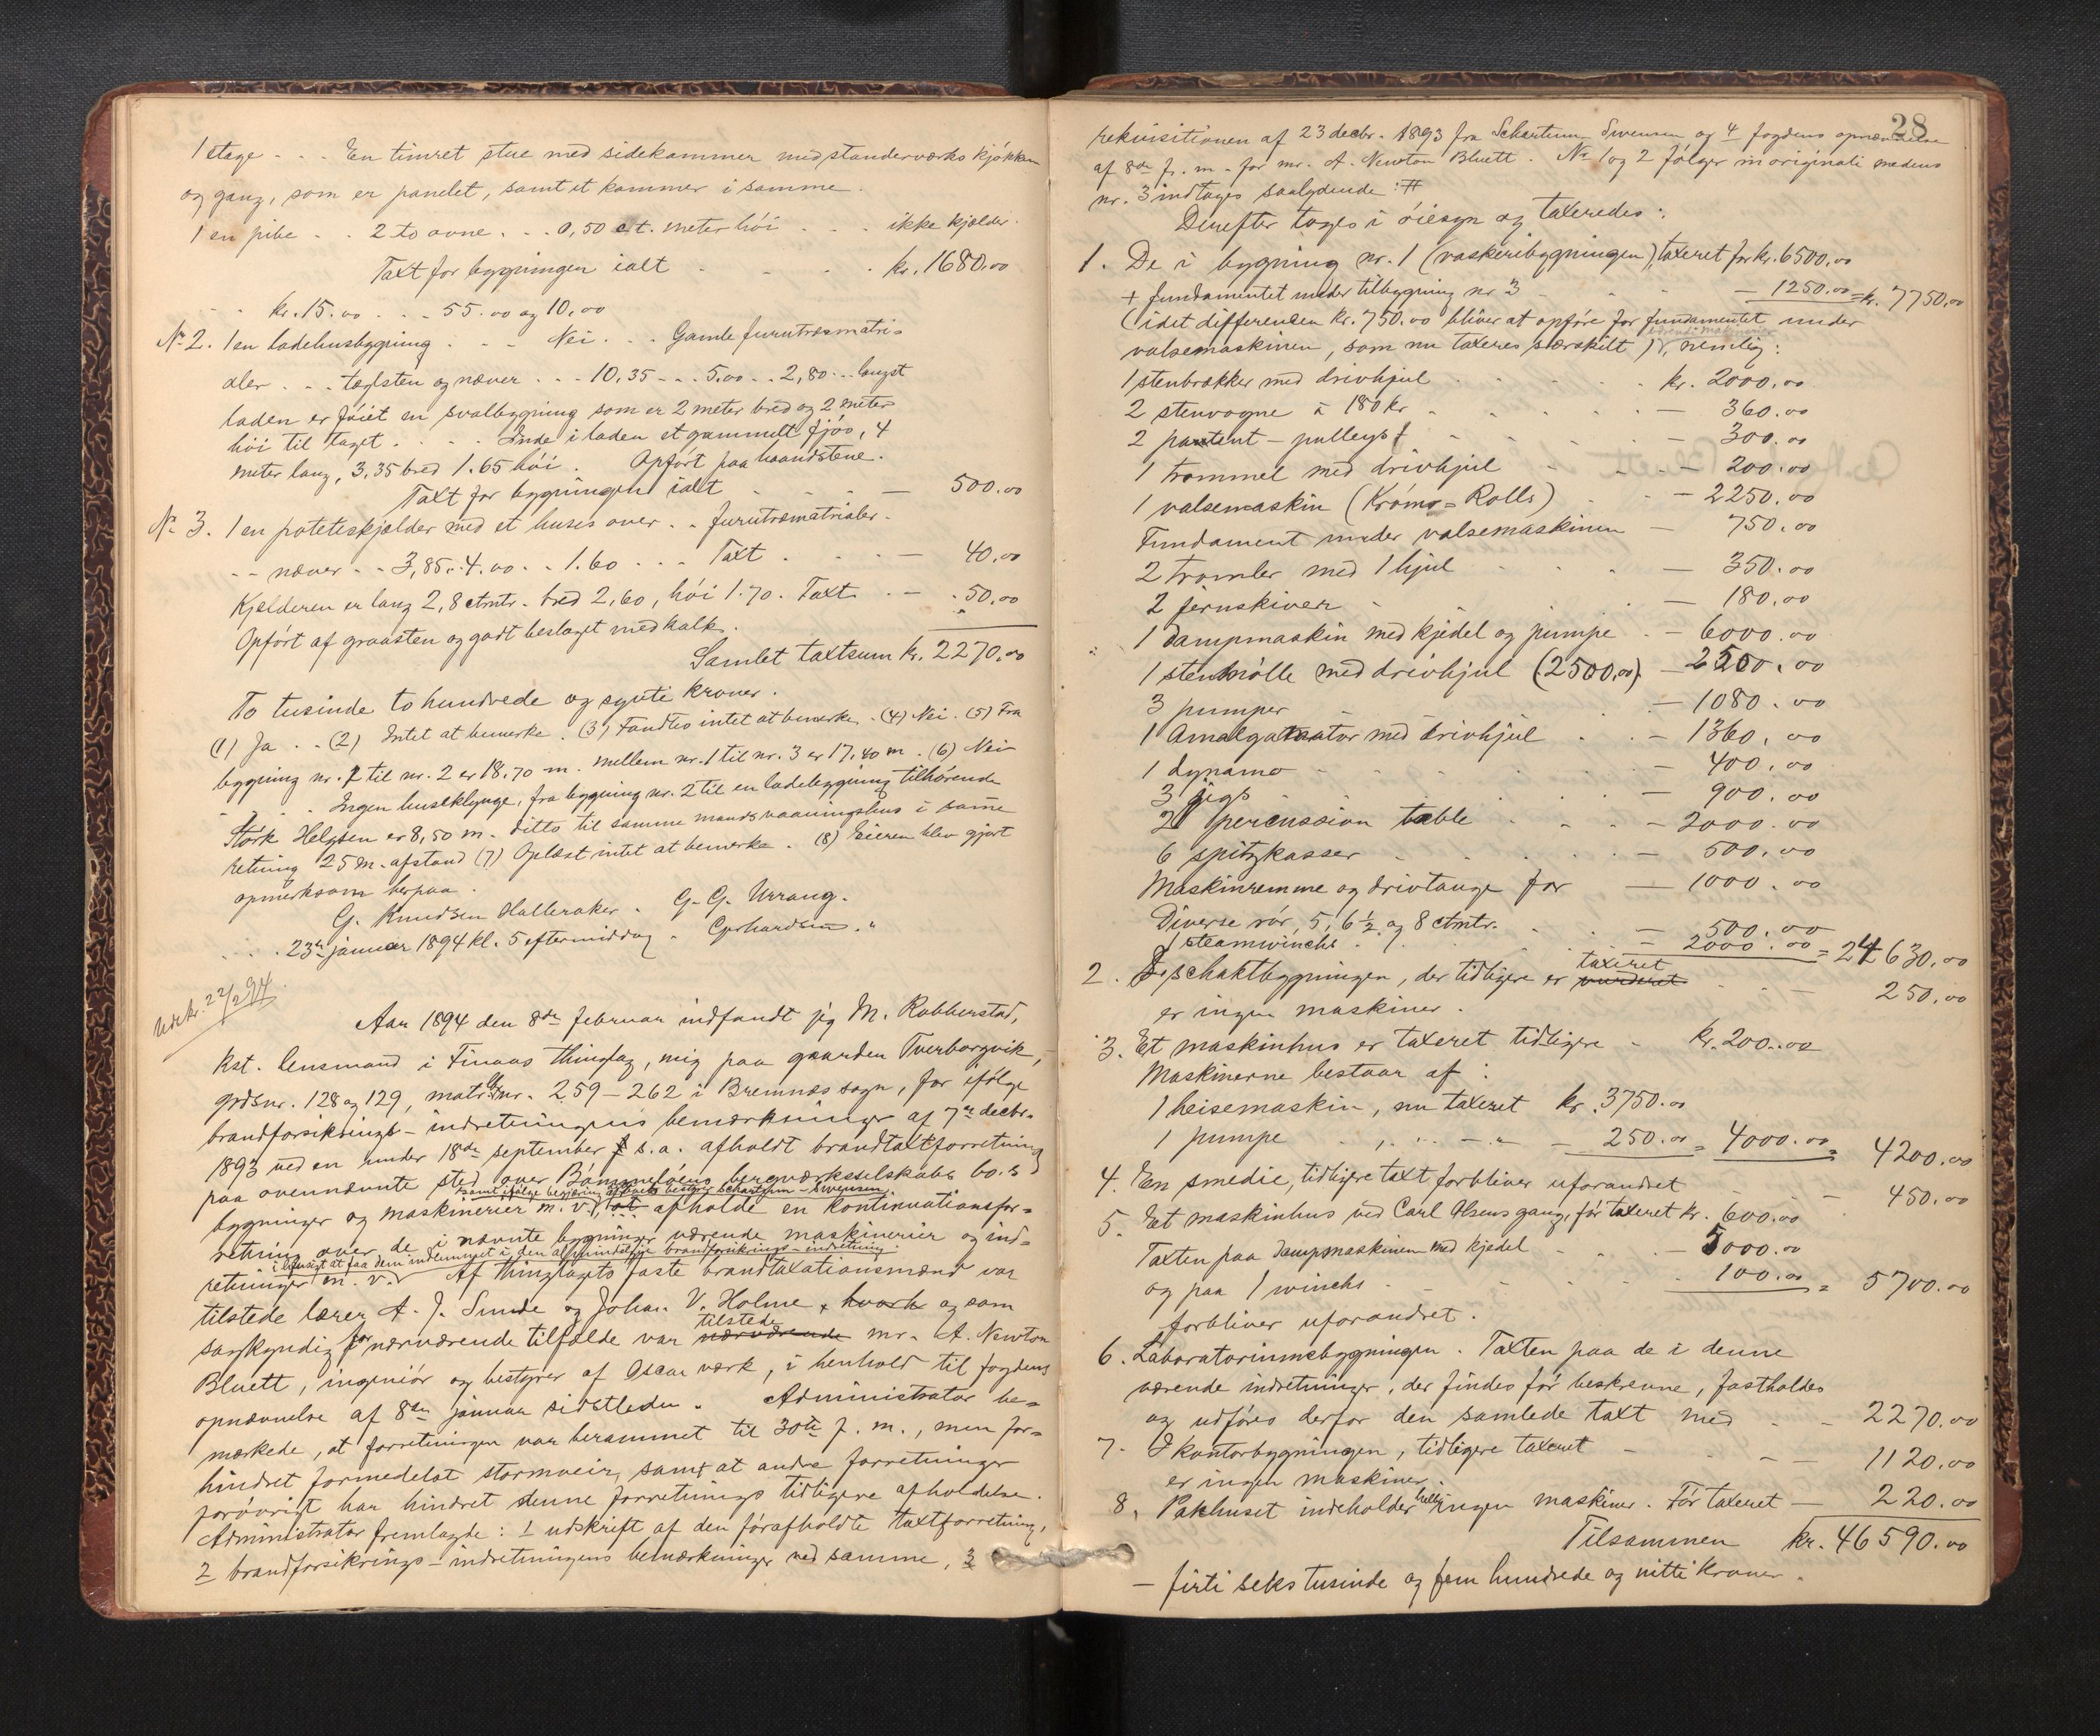 1 etage . . . En timret stue med sidekammer med standerværks kjøkken
og gang, som er panelet, samt et kammer i samme.
1 en pibe . . 2 to ovne . . . 0,50 ct. meter høi . . . ikke kjelder.
Taxt for bygningen ialt . . . . kr. 1680.00
kr. 15.00 . . . 55.00 og 10.00
No 2. 1 en ladehusbygning . . . Nei . . . Gamle furutræsmatri=
aler . . . taglsten og næver . . . 10,35 . . . 5.00 . . 2,80 . . . langst
laden er føiet en svalbygning som er 2 meter bred og 2 meter
høi til taget . . . . Inde i laden et gammelt fjøs, 4
meter lang, 3,35 bred 1.65 høi. Opført paa haandstene.
Taxt for bygningen ialt . . . — 500.00
No 3. 1 en poteteskjelder med et huses over . . furutræmatrialer.
- - næver . . 3,85 . . 4.00 . . 1.60 . . . Taxt . . . — 40.00
Kjelderen er lang 2,8 ctmtr. bred 2,60, høi 1.70. Taxt . — 50.00
Opført af graasten og godt beslaget med kalk.
Samlet taxtsum kr. 2270.00
To tusinde to hundrede og sytti kroner.
(1) Ja . . (2) Intet at bemerke . (3) Fandtes intet at bemerke . (4) Nei . (5) Fra
bygning nr. 1 til nr. 2 er 18,70 m. mellem nr. 1 til nr. 3 er 17,40 m . (6) Nei
. . Ingen huseklynge, fra bygning nr. 2 til en ladebygning tilhørende
Størk Helgesen er 8,50 m. ditto til samme mands vaaningshus i samme
retning 25 m. afstand (7) Oplæst intet at bemerke . (8) Eieren blev gjort
opmerksom herpaa .
G. Knudsen Halleraker . G. G. Urrang.
. . . 23de januar 1894 kl. 5 eftermiddag . Gerhardsen . "
Udskr. 22/2 94.
Aar 1894 den 8de februar indfandt jeg M. Robberstad,
kst. lensmand i Finaas thinglag, mig paa gaarden Tverborgvik,
grdsnr. 128 og 129, matr. nr. 259 – 262 i Bremnæs sogn, for ifølge
brandforsikrings-indretningens bemærkninger af 7de decbr.
1893 ved en under 18de september s.a. afholdt brandtaxtforretning
paa ovennævnte sted over Bømmeløens bergværksselskabs bo.s
samt ifølge begjæring af boets bestyrer Schartum-Svensen
bygninger og maskinerier m. v., at afholde en kontinuationsfor=
retning over de i nævnte bygninger værende maskinerier og ind=
i hensigt at faa dem indlemmet i den almindelige brandforsikrings-indretning.
retninger m. v. Af thinglagets faste brandtaxationsmænd var
tilstede lærer A. J. Sunde og Johan V. Holme, hvorh og som
tilstede
sagkyndig for nærværende tilfælde var nærværende mr. A. Newton
Bluett, ingeniør og bestyrer af Oscar værk, i henhold til fogdens
opnævnelse af 8de januar sidstleden. Administrator be=
mærkede, at forretningen var berammet til 30te f. m., men for=
hindret formedelst stormveir, samt at andre forretninger
forøvrigt har hindret denne forretnings tidligere afholdelse.
Administrator fremlagde: 1 udskrift af den førafholdte taxtforretning,
2 brandforsikrings-indretningens bemærkninger ved samme, 3
28
rekvisitionen af 23 decbr. 1893 fra Schartum Svensen og 4 fogdens opnævnelse
af 8de f. m. for mr. A. Newton Bluett. No 1 og 2 følger in originali medens
nr. 3 indtages saalydende: #
Derefter toges i øiesyn og taxeredes:
1. De i bygning nr. 1 (vaskeribygningen), taxeret for kr. 6500.00
+ fundamentet under tilbygning nr 3 — 1250.00 = kr. 7750.00
(idet differensen kr. 750.00 bliver at opføre for fundamentet under
værende maskinerier
valsemaskinen, som nu taxeres særskilt), nemlig:
1 stenbrækker med drivhjul . . . . kr. 2000.00
2 stenvogne à 180 kr . . . . — 360.00
2 patent - pulleys . . . . — 300.00
1 trommel med drivhjul . . . — 200.00
1 valsemaskin (Krøms=Rolls) . . — 2250.00
Fundament under valsemaskinen — 750.00
2 tromler med 1 hjul . . . — 350.00
2 jernskiver . . . . — 180.00
1 dampmaskin med kjedel og pumpe . — 6000.00
1 stenmølle med drivhjul (2500.00) — 2500.00
3 pumper . . . — 1080.00
1 Amalgamator med drivhjul . . — 1360.00
1 dynamo . . . . — 400.00
3 jigs . . . . — 900.00
2 percussion table . . . — 2000.00
6 spitzkasser . . . . — 500.00
Maskinremme og drivtauge for — 1000.00
Diverse rør, 5, 6 1/2 og 8 ctmtr. . . 500.00
1 steamwinchs . . . — 2000.00 = 24630.00
taxeret
2. I schaktbygningen, der tidligere er vurderet . . — 250.00
er ingen maskiner.
3. Et maskinhus er taxeret tidligere . kr. 200.00
Maskinerne bestaar af:
1 heisemaskin, nu taxeret kr. 3750.00
1 pumpe . . . — 250.00 = 4000.00 = 4200.00
4. En smedie, tidligere taxt forbliver uforandret . . — 450.00
5. Et maskinhus ved Carl Olsens gang, før taxeret kr. 600.00
Taxten paa dampmaskinen med kjedel . . — 5000.00
og paa 1 winchs . . . 100.00 = 5700.00
forbliver uforandret.
6. Laboratoriumsbygningen. Taxten paa de i denne
værende indretninger, der findes før beskrevne, fastholdes
og udføres derfor den samlede taxt med . . 2270.00
7. I kontorbygningen, tidligere taxeret . . — 1120.00
er ingen maskiner.
8. Pakhuset indeholder heller ingen maskiner. Før taxeret — 220.00
Tilsammen kr. 46590.00
— firti seks tusinde og fem hundrede og nitti kroner.